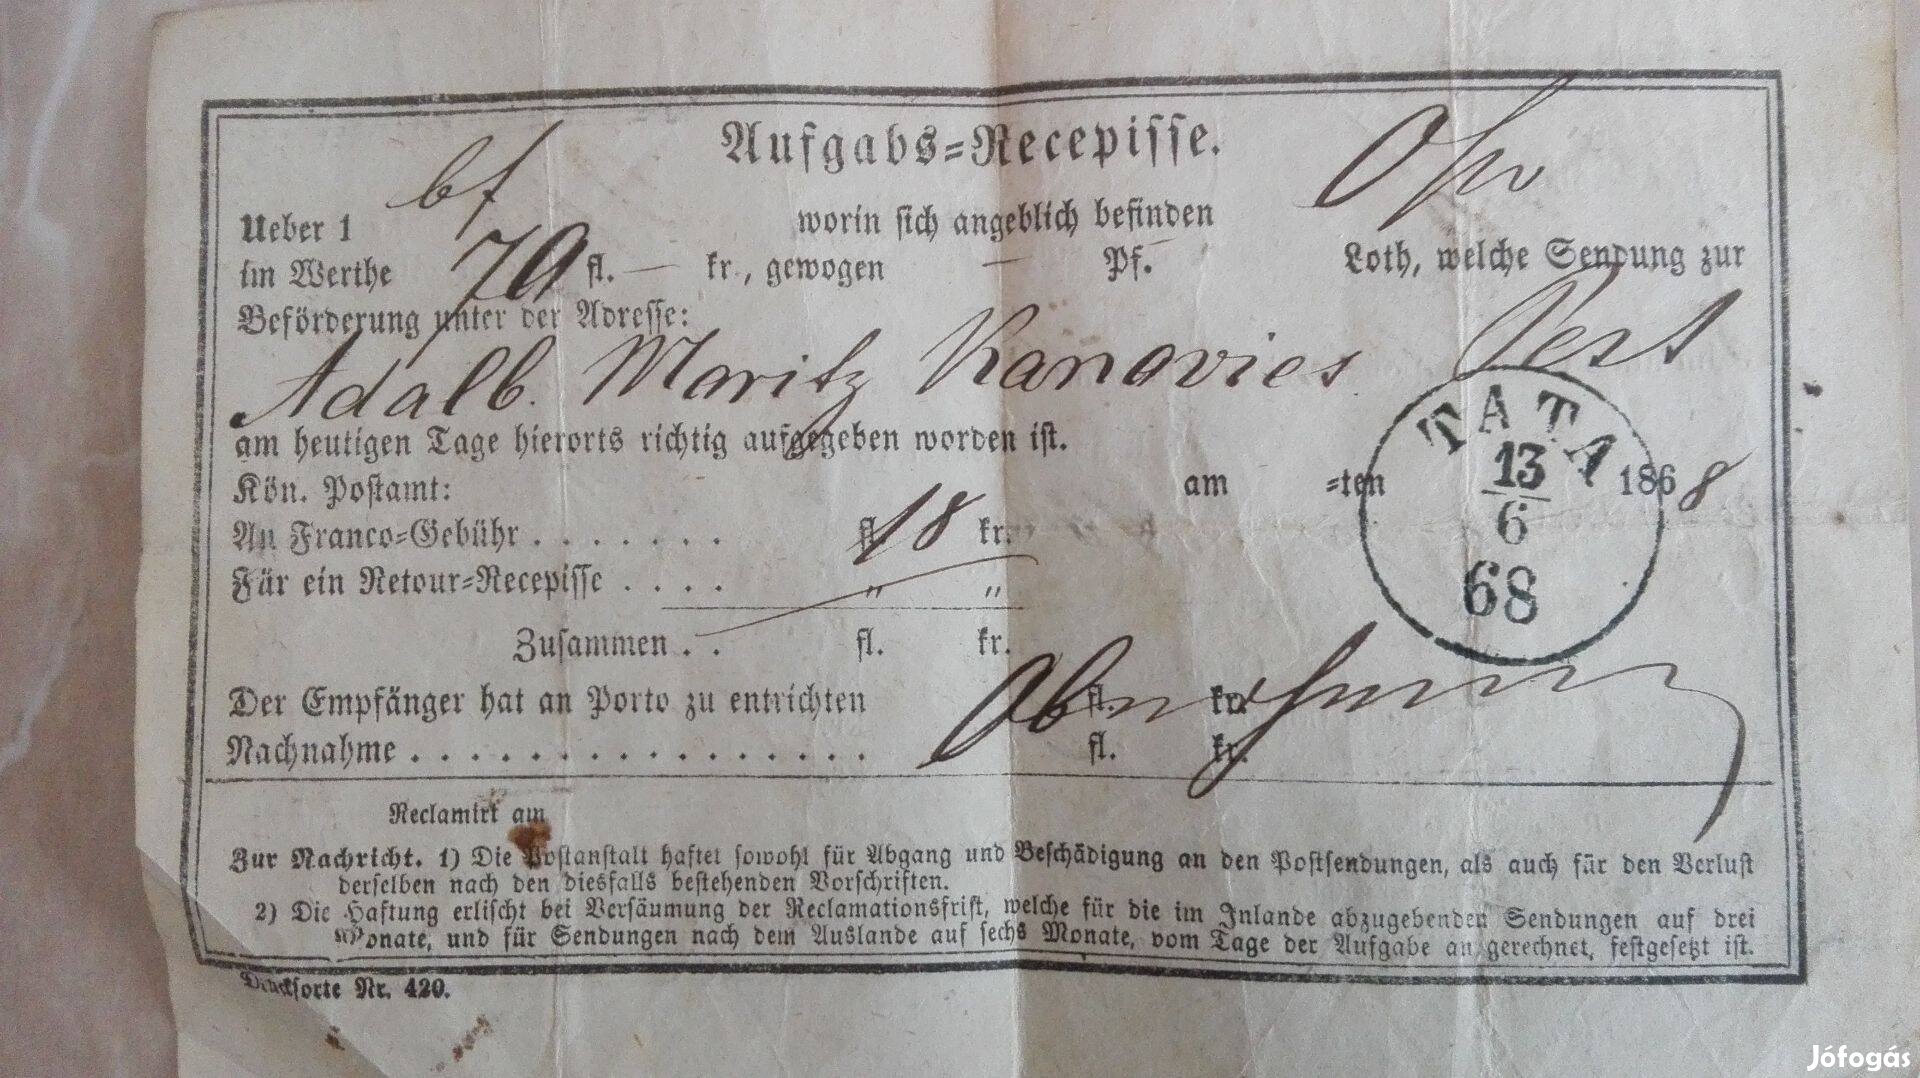 Aufgabs=Recepisse.
Ueber 1 bf worin sich angeblich befinden
im Werthe 70 fl. — kr., gewogen — Pf. Loth, welche Sendung zur
Beförderung unter der Adresse:
Adalb. Moritz Kanovies Pest
am heutigen Tage hierorts richtig aufgegeben worden ist.
TATA
13
6
68
Kön. Postamt: am =ten 1868
An Franco=Gebühr . . . . . . . fl. 18 kr.
Für ein Retour=Recepisse . . . . " "
Zusammen . . fl. kr.
Der Empfänger hat an Porto zu entrichten fl. kr.
Nachnahme . . . . . . . . . . . . . . . . fl. kr.
Reclamirt am
Zur Nachricht. 1) Die Postanstalt haftet sowohl für Abgang und Beschädigung an den Postsendungen, als auch für den Verlust
derselben nach den diesfalls bestehenden Vorschriften.
2) Die Haftung erlischt bei Versäumung der Reclamationsfrist, welche für die im Inlande abzugebenden Sendungen auf drei
Monate, und für Sendungen nach dem Auslande auf sechs Monate, vom Tage der Aufgabe an gerechnet, festgesetzt ist.
Drucksorte Nr. 420.
Jófogás